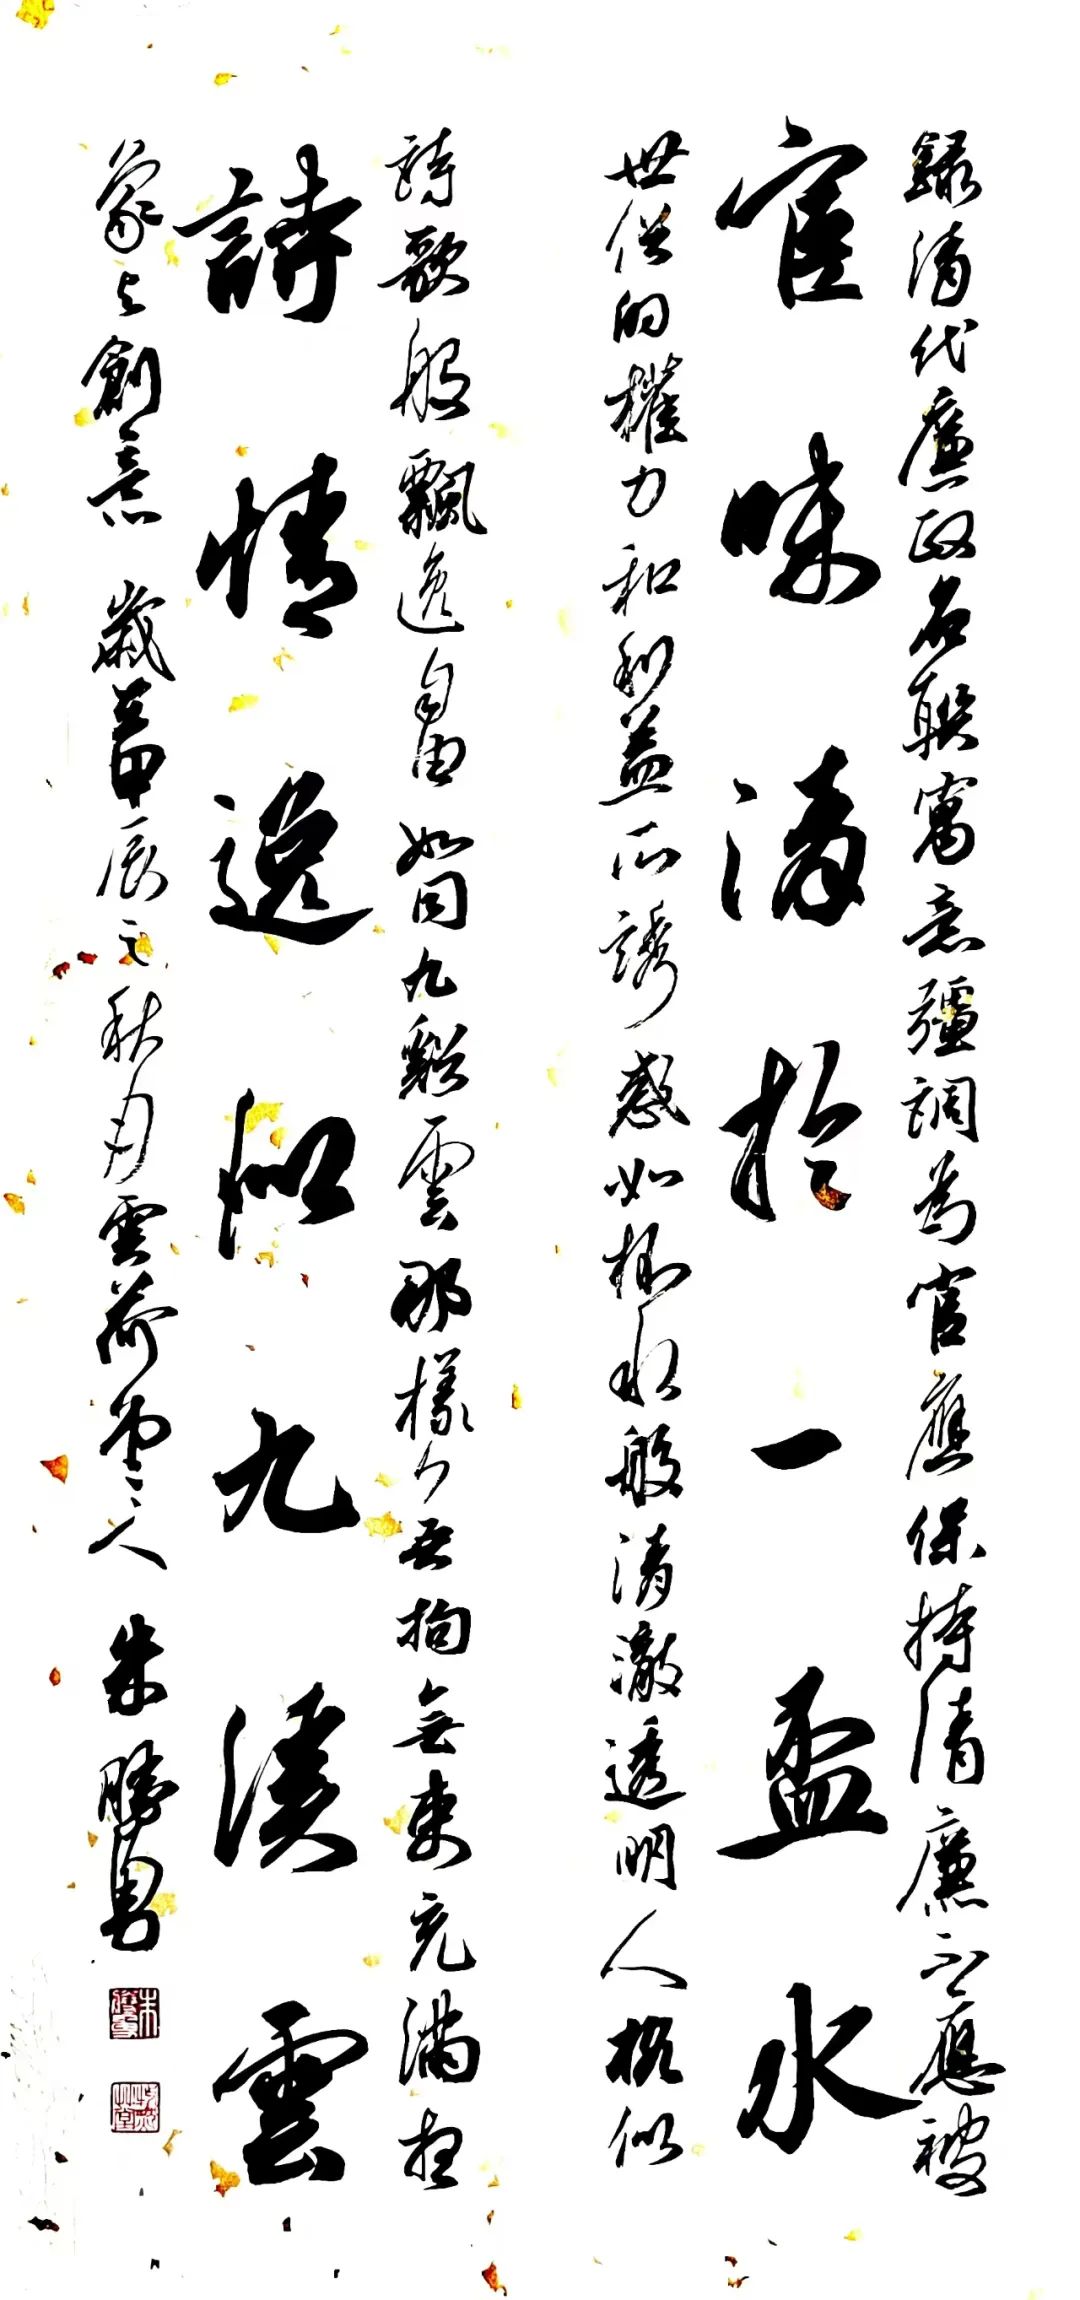 錄清代廉政名聯寓意彊調為官應保持清廉不應被
官味清於一盃水
世俗的權力和利益所誘惑如杯水般清澈透明人格似
詩歌般飄逸自由如同九谿雲那樣無拘無束充滿想
詩情逸似九溪雲
象與創意 歲在甲辰之秋月雲荷堂主人 朱勝勇